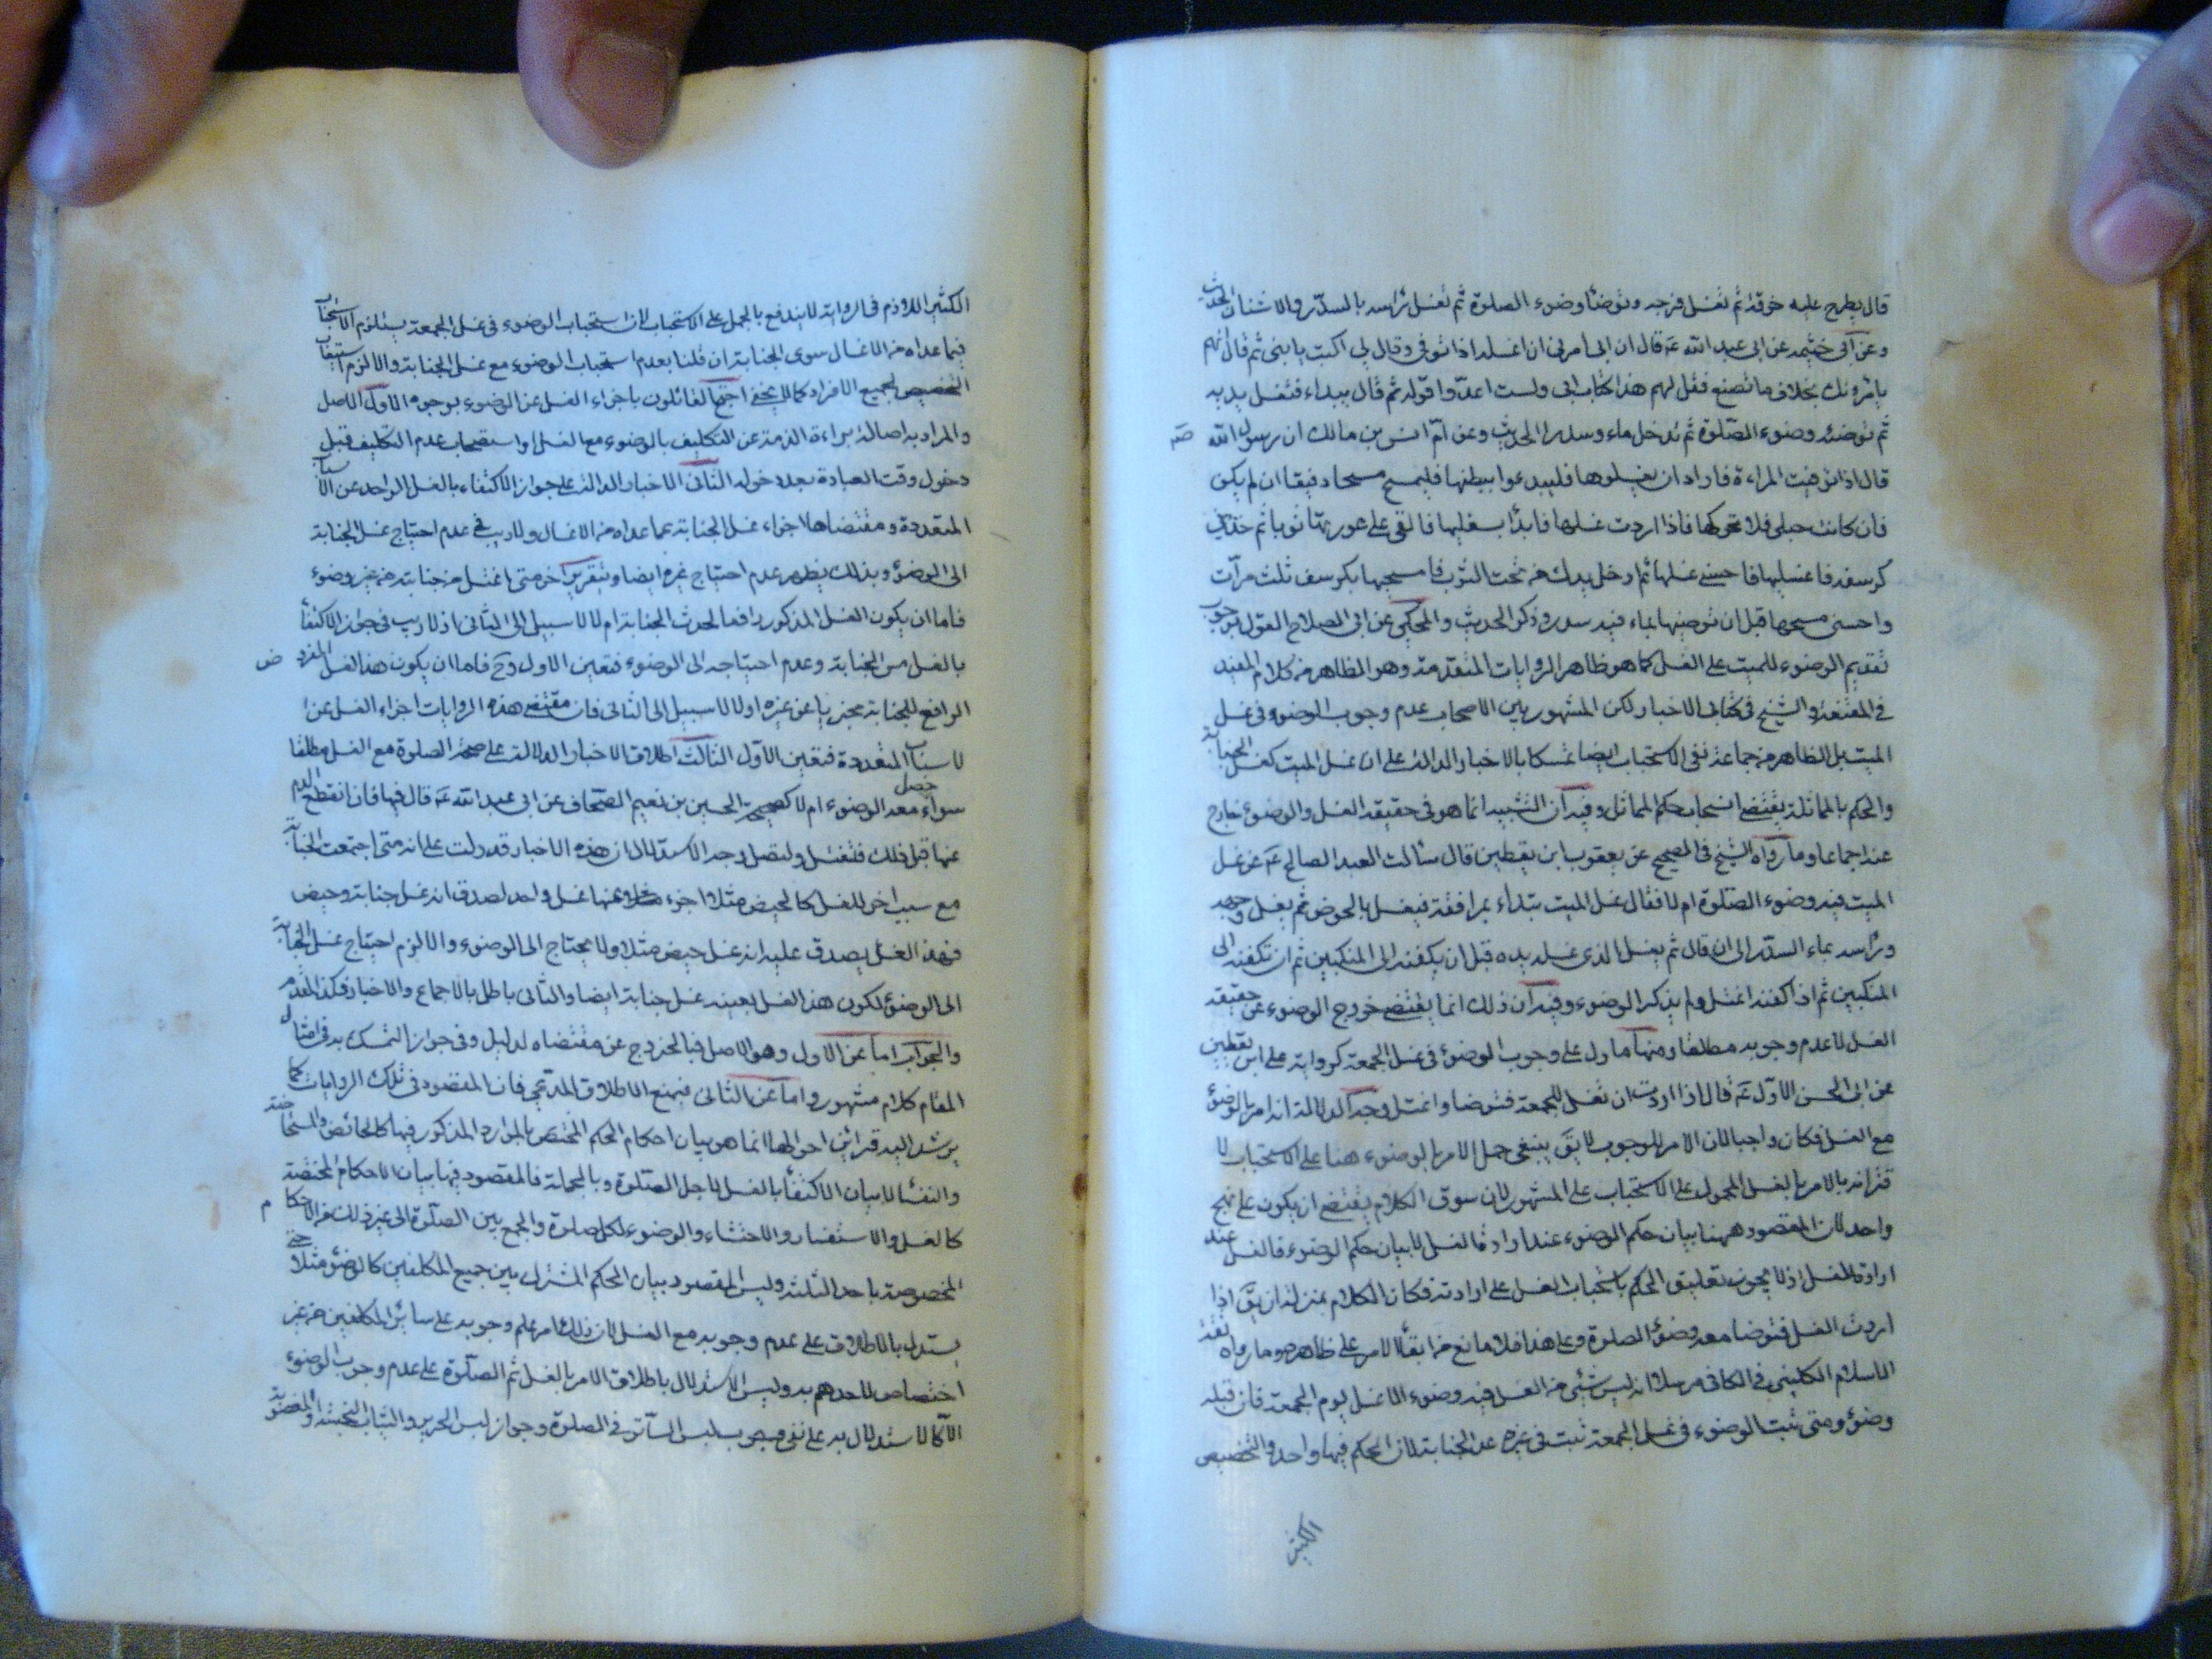 قال يطرح عليه خرقة ثم تغسل فرجه وتوضأ وضوء الصلوة ثم تغسل رأسه بالسدر والاشنان الحديث
وعن ابي خثيمه عن ابي عبد الله عه قال ان ابي امرني ان اغسله اذا توفي وقال لي اكتب يا بني ثم قال انهم
يامرونك بخلاف ما تصنع فقل لهم هذا كتاب ابي ولست اعدوا قوله ثم قال يبداء فتغسل يديه
ثم توضئه وضوء الصلوة ثم تدخل ماء وسدرا الحديث وعن ام انس بن مالك ان رسول الله صه
قال اذا توفيت المراءة فاراد ان يغسلوها فليبدءوا ببطنها فليمسح مسحا رفيقا ان لم يكن
فان كانت حبلى فلا تحركها فاذا اردت غسلها فابدأ بسفليها فالقي على عورتها ثوبا ثم خذي
كرسفه فاغسليها فاحسني غسلها ثم ادخلي يدك من تحت الثوب فامسحيها بكرسف ثلث مرات
واحسني مسحها قبل ان توضيها بماء فيه سدر وذكر الحديث والمحكي عن ابي الصلاح القول بوجوب
تقديم الوضوء للميت على الغسل كما هو ظاهر الروايات المتقدمة وهو الظاهر من كلام المفيد
في المقنعة والشيخ في كتابي الاخبار لكن المشهور بين الاصحاب عدم وجوب الوضوء في غسل
الميت بل الظاهر من جماعة نفي الاستحباب ايضا تمسكا بالاخبار الدالة على ان غسل الميت كغسل الجنابة
والحكم بالمماثلة يقتضي انسحاب حكم المماثل وفيه ان التشبيه انما هو في حقيقة الغسل والوضوء خارج
عنه اجماعا وما رواه الشيخ في الصحيح عن يعقوب ابن يقطين قال سألت العبد الصالح عه عن غسل
الميت فيه وضوء الصلوة ام لا فقال غسل الميت يبتداء بمرافقه فيغسل بالحرض ثم يغسل وجهه
ورأسه بماء السدر الى ان قال ثم يغسل الذي غسله يده قبل ان يكفنه الى المنكبين ثم ان تكفنه الى
المنكبين ثم اذا كفنه اغتسل ولم يذكر الوضوء وفيه ان ذلك انما يقتضي خروج الوضوء عن حقيقه
الغسل لا عدم وجوبه مطلقا ومنها ما دل على وجوب الوضوء في غسل الجمعة كرواية علي ابن يقطين
عن ابي الحسن الاول عه قال اذا اردت ان تغسل للجمعة فتوضا واغتسل وجه الدلالة انه امر بالوضوء
مع الغسل فكان واجبا لان الامر للوجوب لا يقَ ينبغي حمل الامر بالوضوء هنا على الاستحباب لا
قترانه بالامر بالغسل المحمول على الاستحباب على المشهور لان سوق الكلام يقتضي ان يكون على نهج
واحد لان المقصود ههنا بيان حكم الوضوء عند ارادة الغسل لا بيان حكم الوضوء فالغسل عند
ارادة الغسل اذ لا يجوز تعليق الحكم باستحباب الغسل على ارادته فكان الكلام بمنزلة ان يقَ اذا
اردت الغسل فتوضا معه وضوء الصلوة وعلى هذا فلا مانع من ابقاء الامر على ظاهره وما رواه ثقة
الاسلام الكليني في الكافي مرسلا انه ليس شيئ من الغسل فيه وضوء الا غسل يوم الجمعة فان قبله
وضوء ومتى ثبت الوضوء في غسل الجمعة ثبت في غيره عدا الجنابة لان الحكم فيها واحد والتخصيص
الكثير
الكثير اللازم في الرواية لا يندفع بالحمل على الاستحباب لان استحباب الوضوء في غسل الجمعة يستلزم الاستحباب
فيما عداه من الاغسال سوى الجنابة ان قلنا بعدم استحباب الوضوء مع غسل الجنابة والا لزم استيعاب
التخصيص لجميع الافراد كما لا يخفى احتج القائلون باجزاء الغسل عن الوضوء بوجوه الاول الاصل
والمراد به اصالة براءة الذمة عن التكليف بالوضوء مع الغسل او استصحاب عدم التكليف قبل
دخول وقت العبادة بعد دخوله الثاني الاخبار الدالة على جواز الاكتفاء بالغسل الواحد عن الاسباب
المتعددة ومقتضاها اجزاء غسل الجنابة عما عداه من الاغسال ولا ريب في عدم احتياج غسل الجنابة
الى الوضوء وبذلك يظهر عدم احتياج غيره ايضا وبتقرير آخر متى اغتسل من جنابة من غير وضوء
فاما ان يكون الغسل المذكور رافعا لحدث الجنابة ام لا لا سبيل الى الثاني اذ لا ريب في جواز الاكتفاء
بالغسل من الجنابة وعدم احتياجه الى الوضوء فتعين الاول وح فاما ان يكون هذا الغسل المفروض
الرافع للجنابة مجزيا عن غيره او لا لا سبيل الى الثاني فان مقتضى هذه الروايات اجزاء الغسل عن ا
لاسباب المتعددة فتعين الاول الثالث اطلاق الاخبار الدالة على صحة الصلوة مع الغسل مطلقا
سواء حصل معه الوضوء ام لا كصحيحة الحسين بن نعيم الصحاف عن ابي عبد الله عه قال فيها فان انقطع الدم
عنها قبل ذلك فلتغتسل ولتصل وجه الاستدلال ان هذه الاخبار قد دلت على انه متى اجتمعت الجنابة
مع سبب اخر للغسل كالحيض مثلا اجزء عنها غسل واحد لصدق انه غسل جنابة وحيض
فهذا الغسل يصدق عليه انه غسل حيض مثلا ولا يحتاج الى الوضوء والا لزم احتياج غسل الجنابة
الى الوضوء لكون هذا الغسل بعينه غسل جنابة ايضا والثاني باطل بالاجماع والاخبار فكذا المقدم
والجواب اما عن الاول وهو الاصل فبالخروج عن مقتضاه لدليل وفي جواز التمسك به في امثال
المقام كلام مشهور واما عن الثاني فيمنع الاطلاق المدعى فان المقصود في تلك الروايات كما
يرشد اليه قرائن احوالها انما هو بيان احكام الحكم المختص بالموارد المذكور فيها كالحائض والمستحاضة
والنفساء لا بيان الاكتفاء بالغسل لاجل الصلوة وبالجملة فالمقصود فيها بيان الاحكام المختصة
كالغسل والاستثفار والاحتشاء والوضوء لكل صلوة والجمع بين الصلوة الى غير ذلك من الاحكام
المخصوصة باحد الثلثه وليس المقصود بيان الحكم المشترك بين جميع المكلفين كالوضوء مثلا حتى
يستدل بالاطلاق على عدم وجوبه مع الغسل لان ذلك امر علم وجوبه على سائر المكلفين من غير
اختصاص لاحدهم به وليس الاستدلال باطلاق الامر بالغسل ثم الصلوة على عدم وجوب الوضوء
الا كالاستدلال به على نفي وجوب لبس الساتر في الصلوة وجواز لبس الحرير والثياب النجسه والمغصوبة